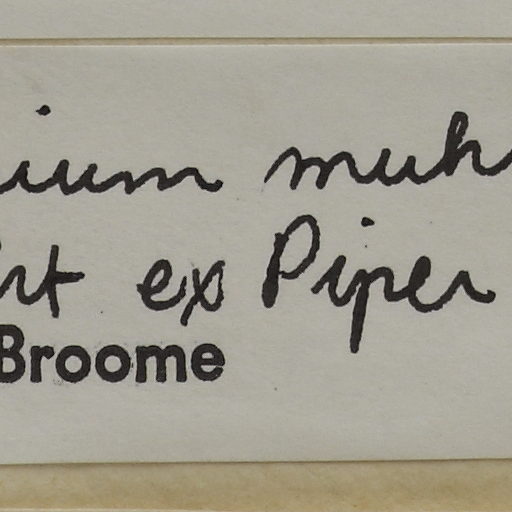 ium muh
rt ex Piper
Broome